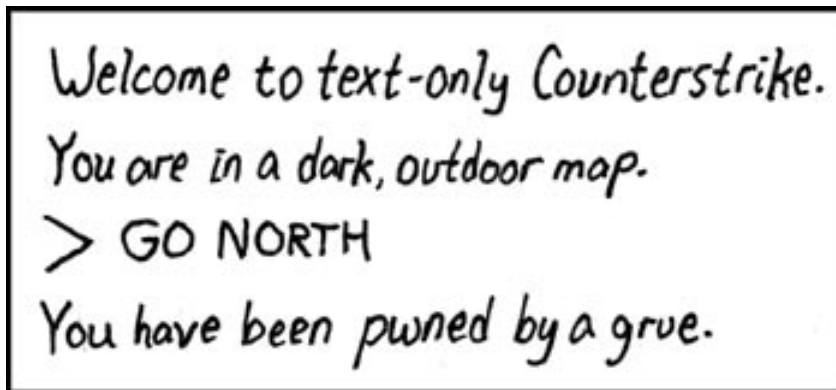 Welcome to text-only Counterstrike.
You are in a dark, outdoor map.
> GO NORTH
You have been pwned by a grue.